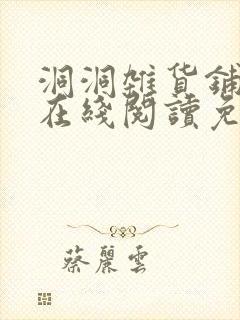 洞洞雜貨鋪
在綫閱讀免
蔡麗雲